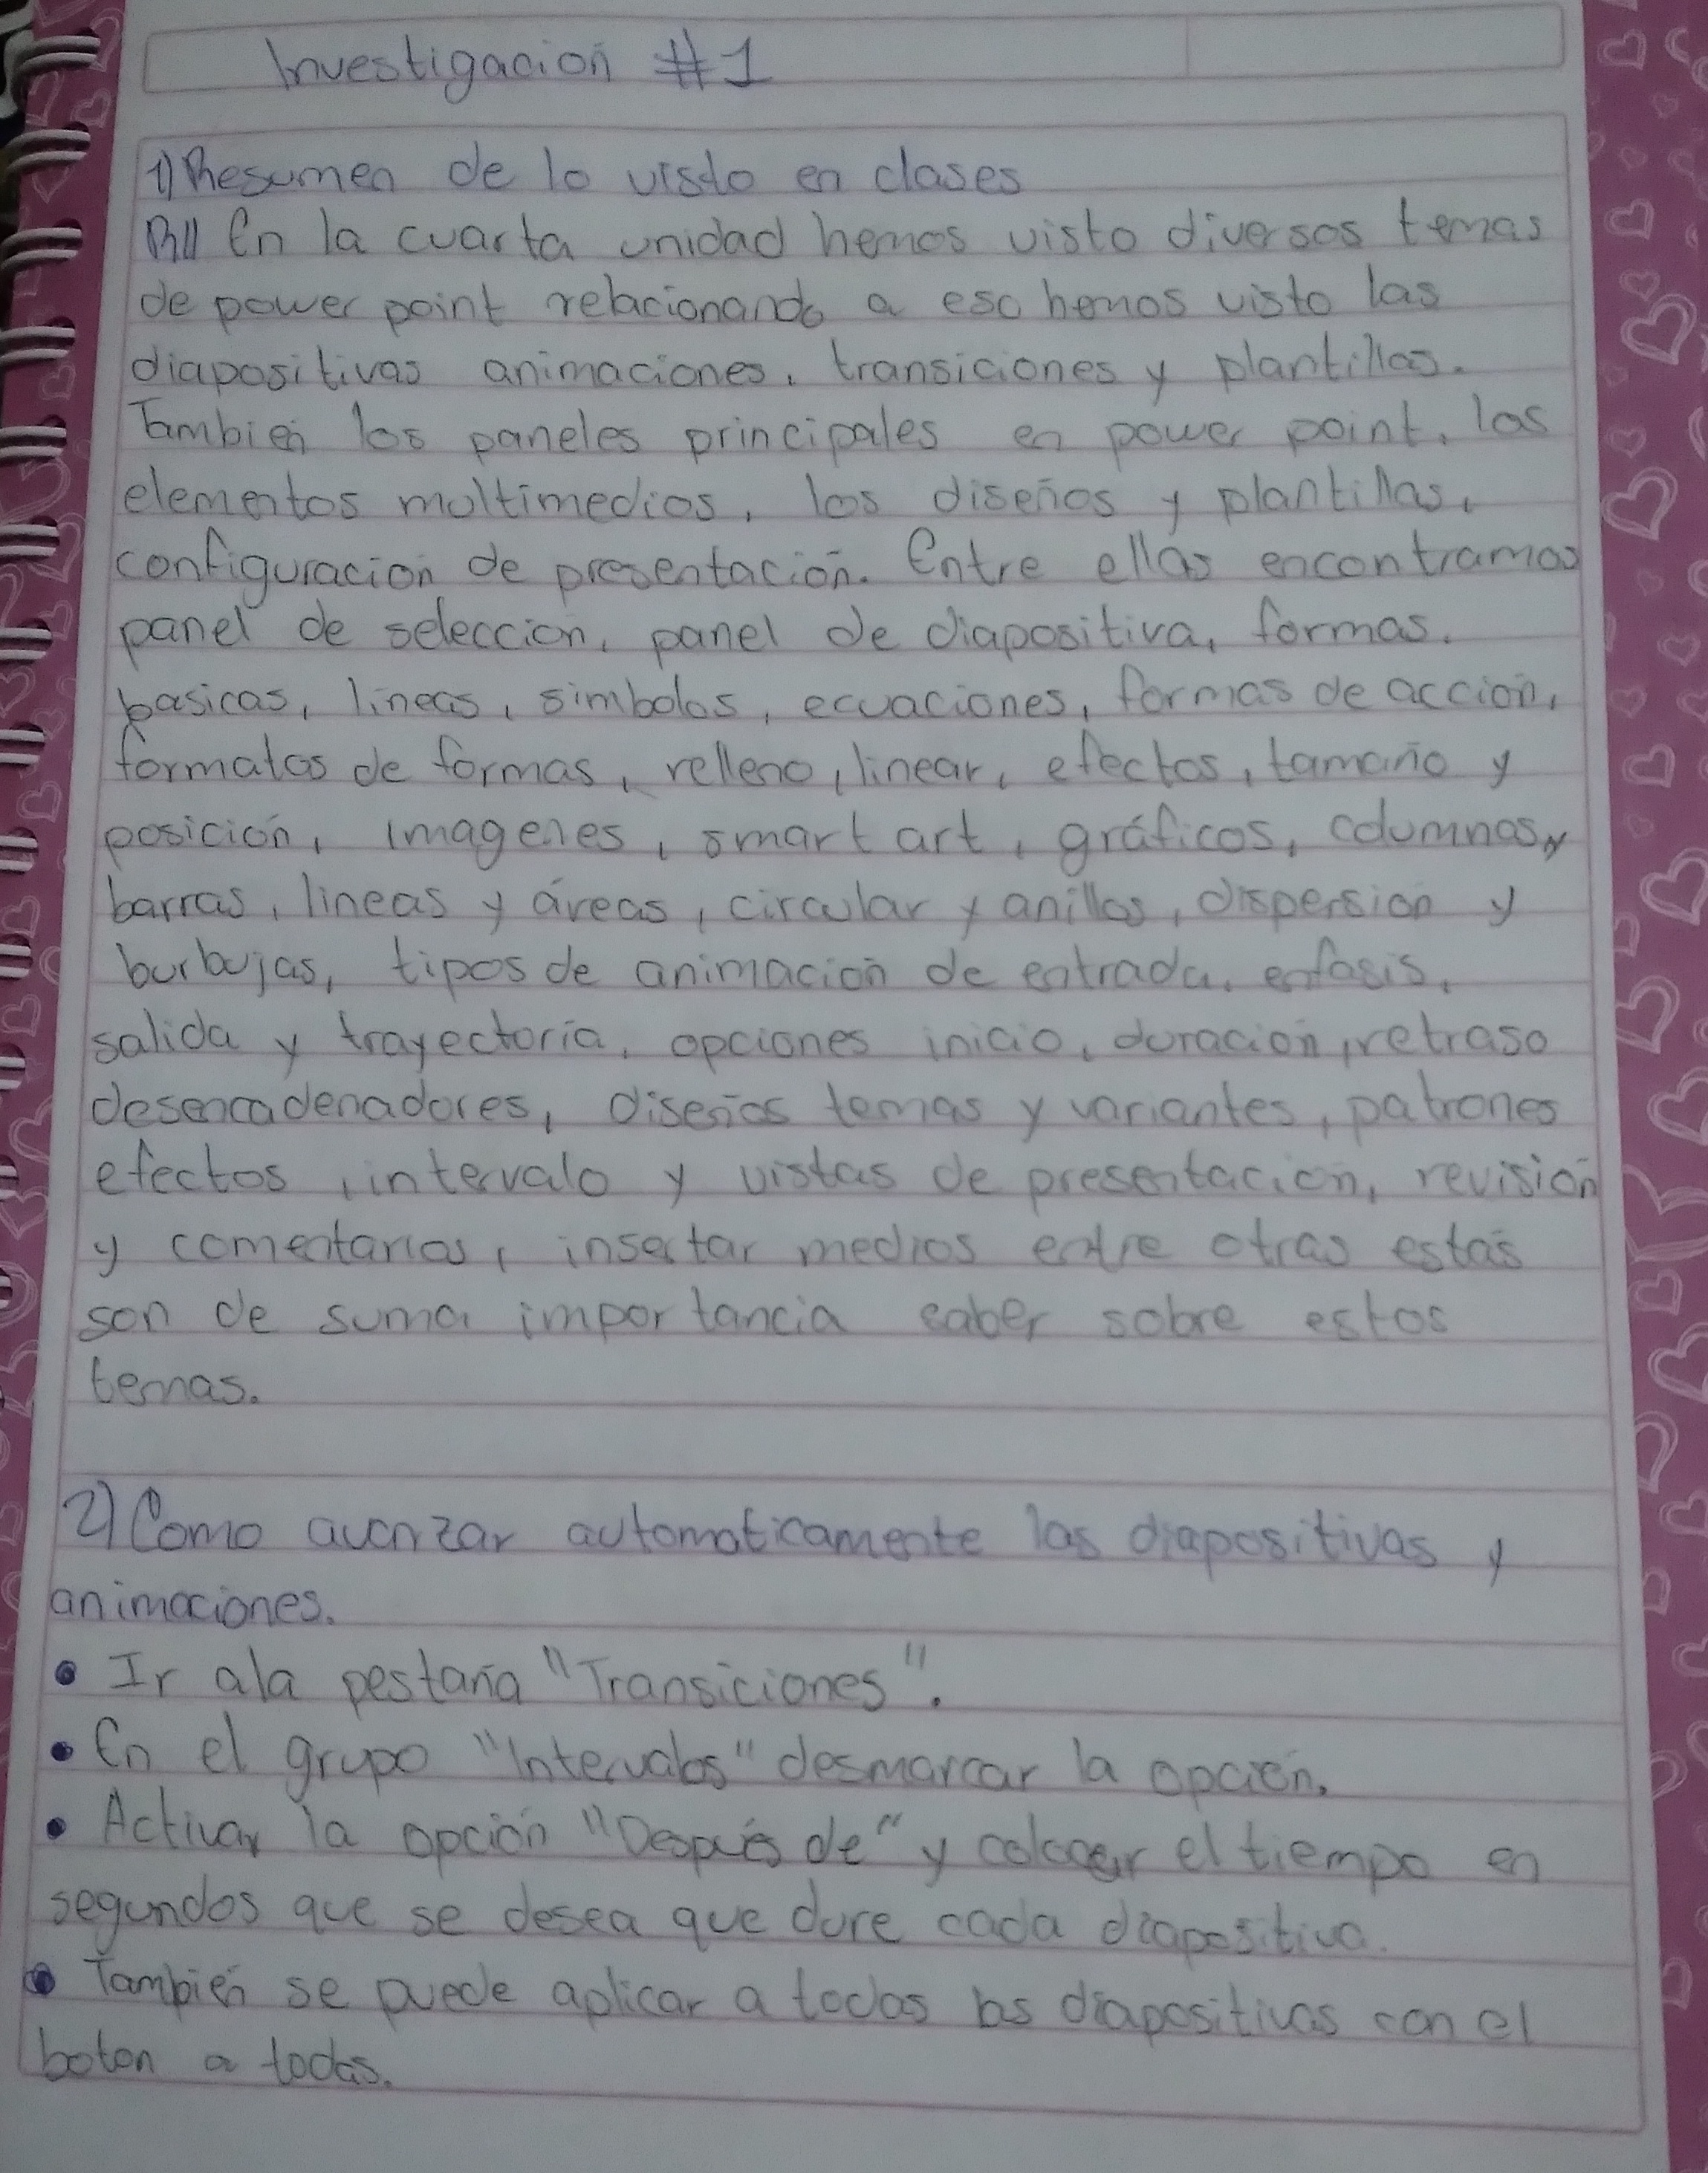 Investigacion #1
1) Resumen de lo visto en clases
R// En la cuarta unidad hemos visto diversos temas
de power point relacionando a eso hemos visto las
diapositivas animaciones, transiciones y plantillas.
Tambien los paneles principales en power point, los
elementos multimedios, los diseños y plantillas,
configuracion de presentación. Entre ellas encontramos
panel de seleccion, panel de diapositiva, formas.
basicas, lineas, simbolos, ecuaciones, formas de acción,
formatos de formas, relleno, linear, efectos, tamaño y
posición, imagenes, smart art, gráficos, columnas y
barras, lineas y áreas, circular y anillos, dispersion y
burbujas, tipos de animación de entrada, enfasis,
salida y trayectoria, opciones inicio, duración, retraso
desencadenadores, diseños temas y variantes, patrones
efectos, intervalo y vistas de presentación, revisión
y comentarios, insertar medios entre otras estas
son de suma importancia saber sobre estos
temas.
2) Como avanzar automaticamente las diapositivas y
animaciones.
• Ir ala pestaña "Transiciones".
• En el grupo "Intervalos" desmarcar la opción.
• Activar la opción "Después de" y colocar el tiempo en
segundos que se desea que dure cada diapositiva.
• Tambien se puede aplicar a todas las diapositivas con el
boton a todas.